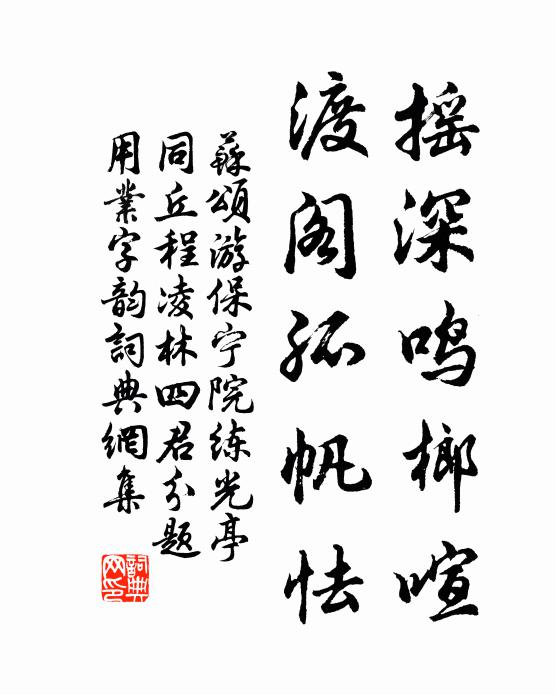 摇深鸣榔喧
渡阁孤帆怯
蘇頌游保宁院练光亭
同丘程凌林四君分题
用業字韵詞典網集
詞典网印